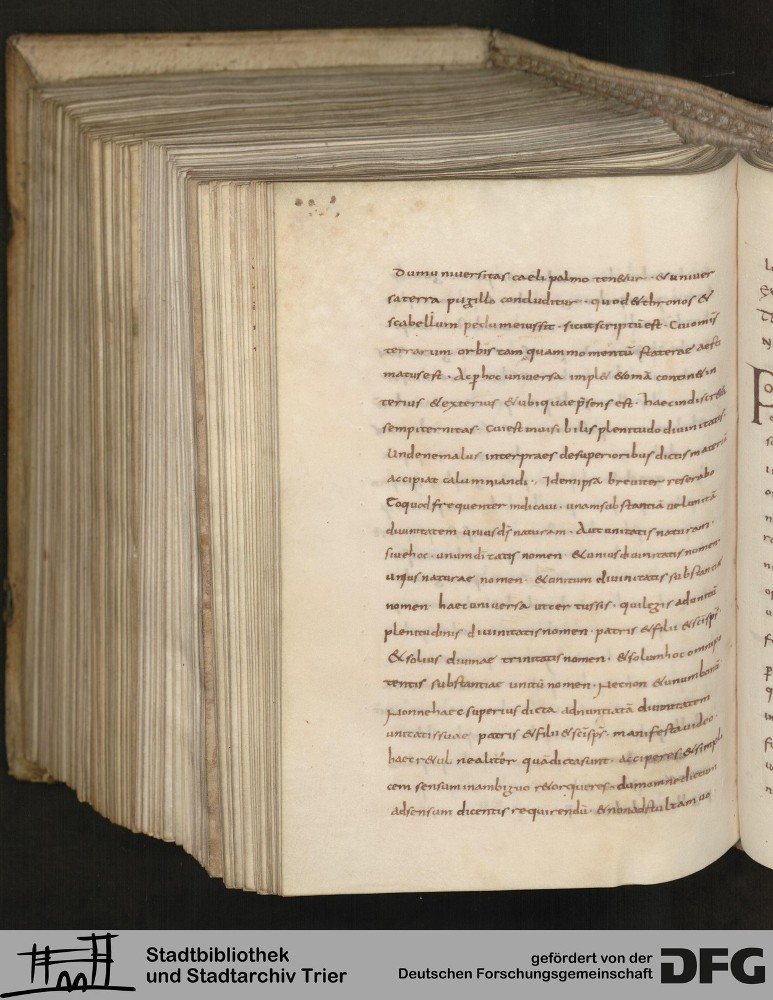 Dum uniuersitas caeli palmo ten&ur · & uniuer
sa terra pugillo concluditur · quod & thronos &
scabellum pedum eius sit · sicut scriptū est · Cui omīs
terrarum orbis tam quam momentū staterae aesti
matus est · Ac p hoc uniuersa impl& & omā contin& in
terius & exterius & ubiquae p̄sens est · haec indiscr&a
sempiternitas · Cui est inuisibilis plenitudo diuinitatis ·
Unde ne malus interpraes de superioribus dictis materiā
accipiat calumniandi · Idem ipsa breuiter reserabo
Eo quod frequenter indicaui · unam substantiā uel unitā
diuinitatem unius dī naturam · Aut unitatis naturam ·
siue hoc · unum ditatis nomen · & unius diuinitatis nomen ·
unius naturae nomen · & unitum diuinitatis substantiae
nomen haec uniuersa ut ter iussis · qui legis ad unitū
plenitudinis diuinitatis nomen · patris & filii & sc̄i sp̄s ·
& solius diuinae trinitatis nomen · & solum hoc omnipo
tentis substantiae unitū nomen · Necnon & unum bonū
Nonne haec superius dicta · Ad unitatā diuinitatem
unitatis suae patris & filii & sc̄i sp̄s · manifesta uideo ·
haec r&ul ne aliter quā dicta sunt · acciperes · & simpli
cem sensum in ambiguo r&orqueres · dum omne dictum
ad sensum dicentis requirendū · & non ad stultam uo
Stadtbibliothek
und Stadtarchiv Trier
gefördert von der
Deutschen Forschungsgemeinschaft
DFG